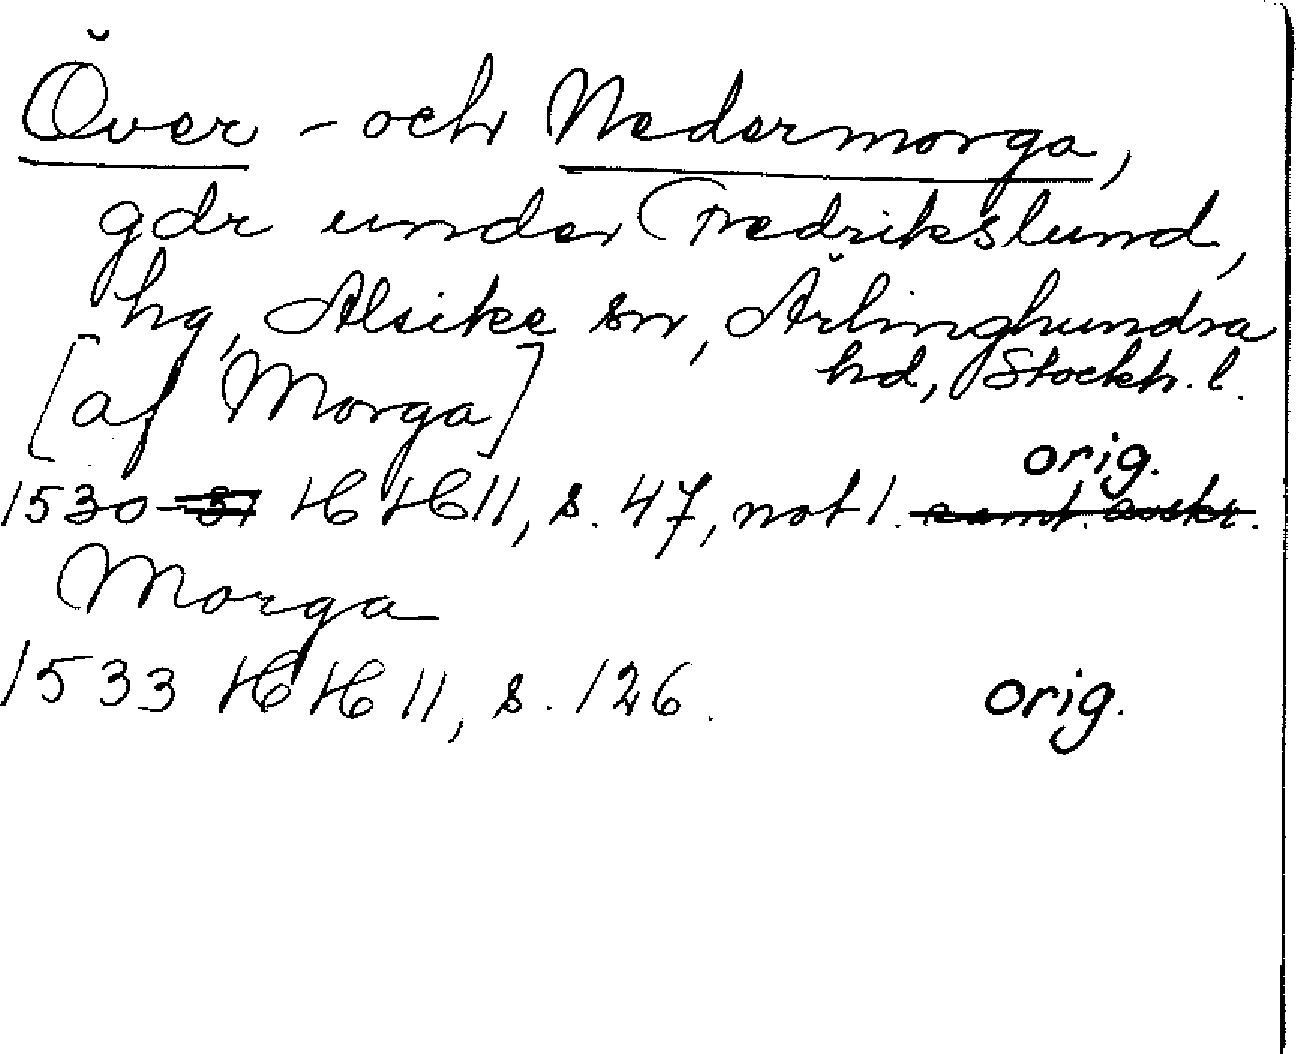 Över - och Nedermorga,
gdr under Fredrikslund,
hg, Alsike sn, Ärlinghundra
hd, Stockh. l.
[af Morga]
orig.
1530-31 HH 11, s. 47, not 1. samt. avskr.
Morga
1533 HH 11, s. 126. orig.